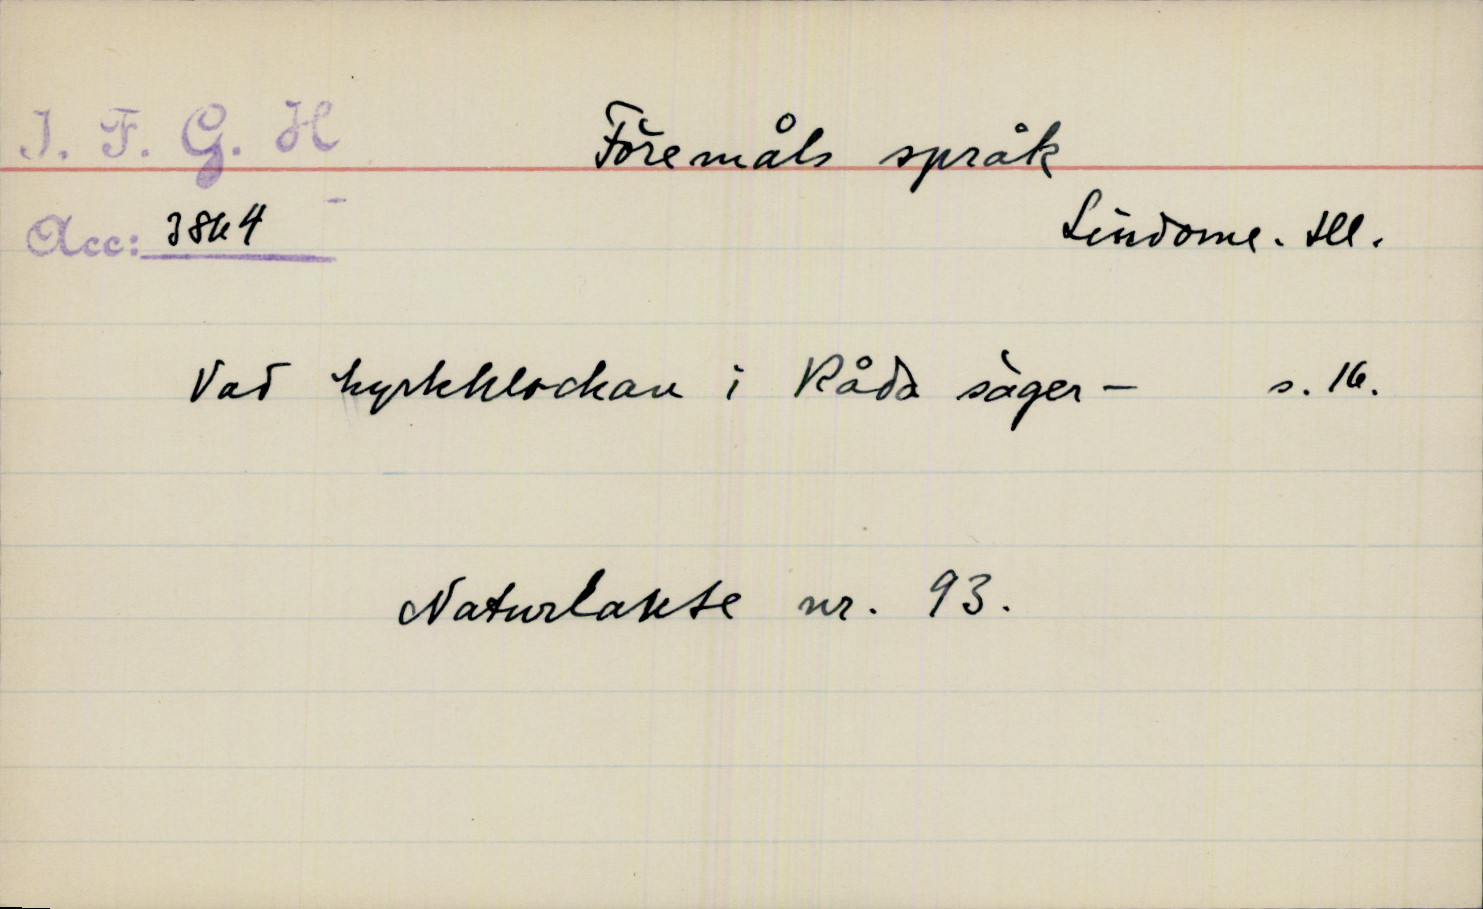 I. F. G. H
Föremåls språk
Acc: 3864
Lindome. Hl.
Vad kyrkklockan i Råda säger – s. 16.
Naturlakte nr. 93.